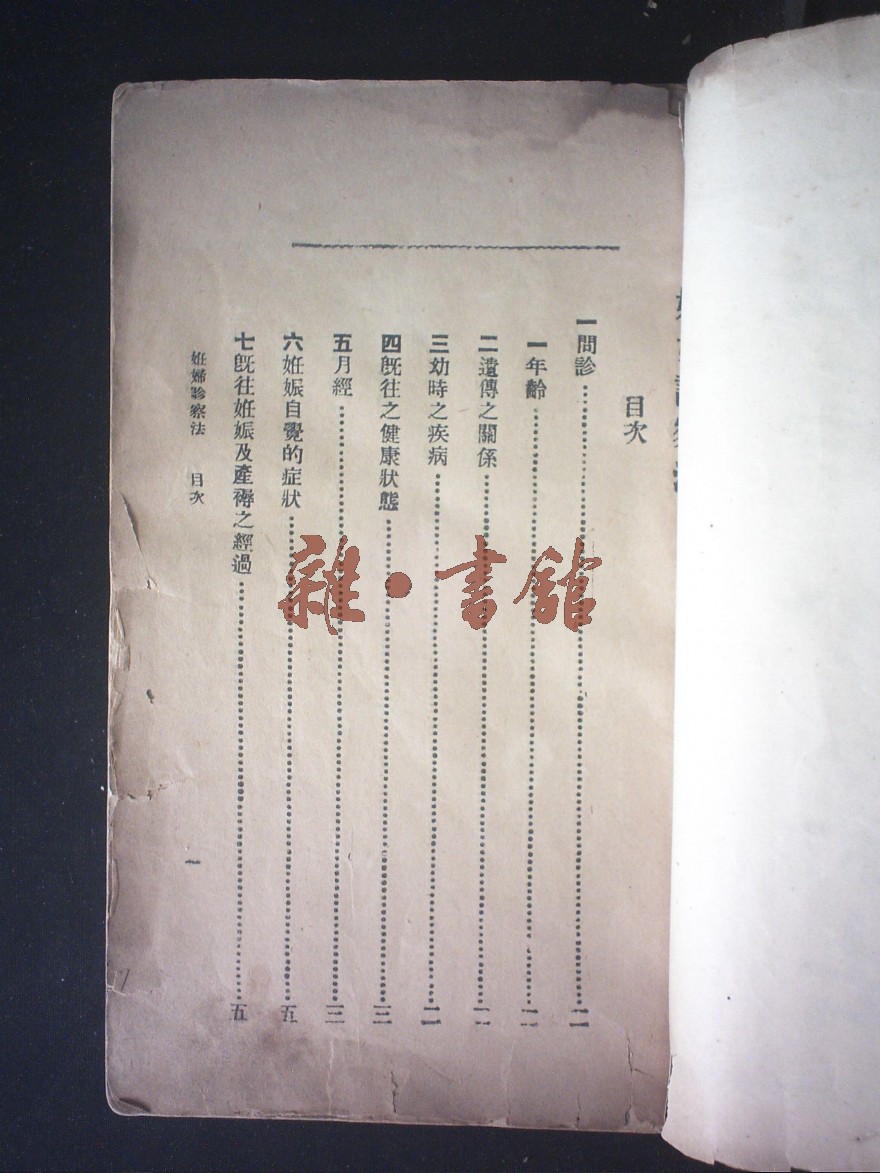 目次
一問診……二
一年齡……二
二遺傳之關係……二
三幼時之疾病……二
四旣往之健康狀態……三
五月經……三
六姙娠自覺的症狀……五
七旣往姙娠及產褥之經過……五
姙婦診察法　目次
一
雜・書館